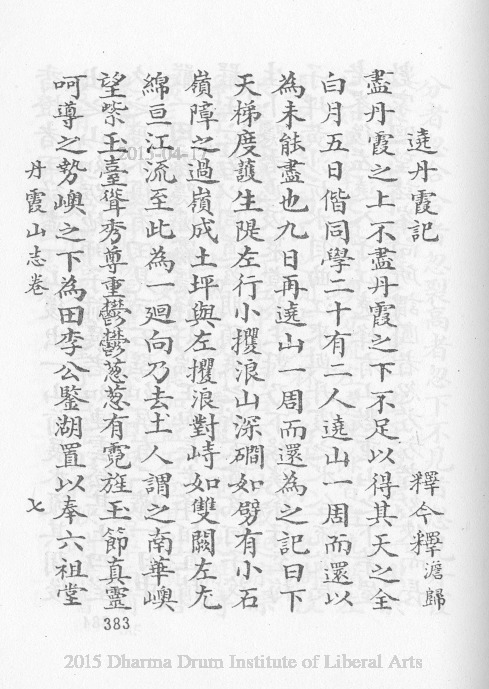 遶丹霞記　釋今釋澹歸
盡丹霞之上不盡丹霞之下不足以得其天之全
白月五日偕同學二十有二人遶山一周而還以
為未能盡也九日再遶山一周而還為之記曰下
天梯度護生隄左行小攫浪山深磵如劈有小石
嶺障之過嶺成土坪與左攫浪對峙如雙闕左尤
綿亘江流至此為一廻向乃去土人謂之南華嶼
望紫玉臺聳秀尊重鬱鬱葱葱有霓旌玉節真靈
呵導之勢嶼之下為田李公鑒湖置以奉六祖堂
丹霞山志卷　七
383
2015 Dharma Drum Institute of Liberal Arts